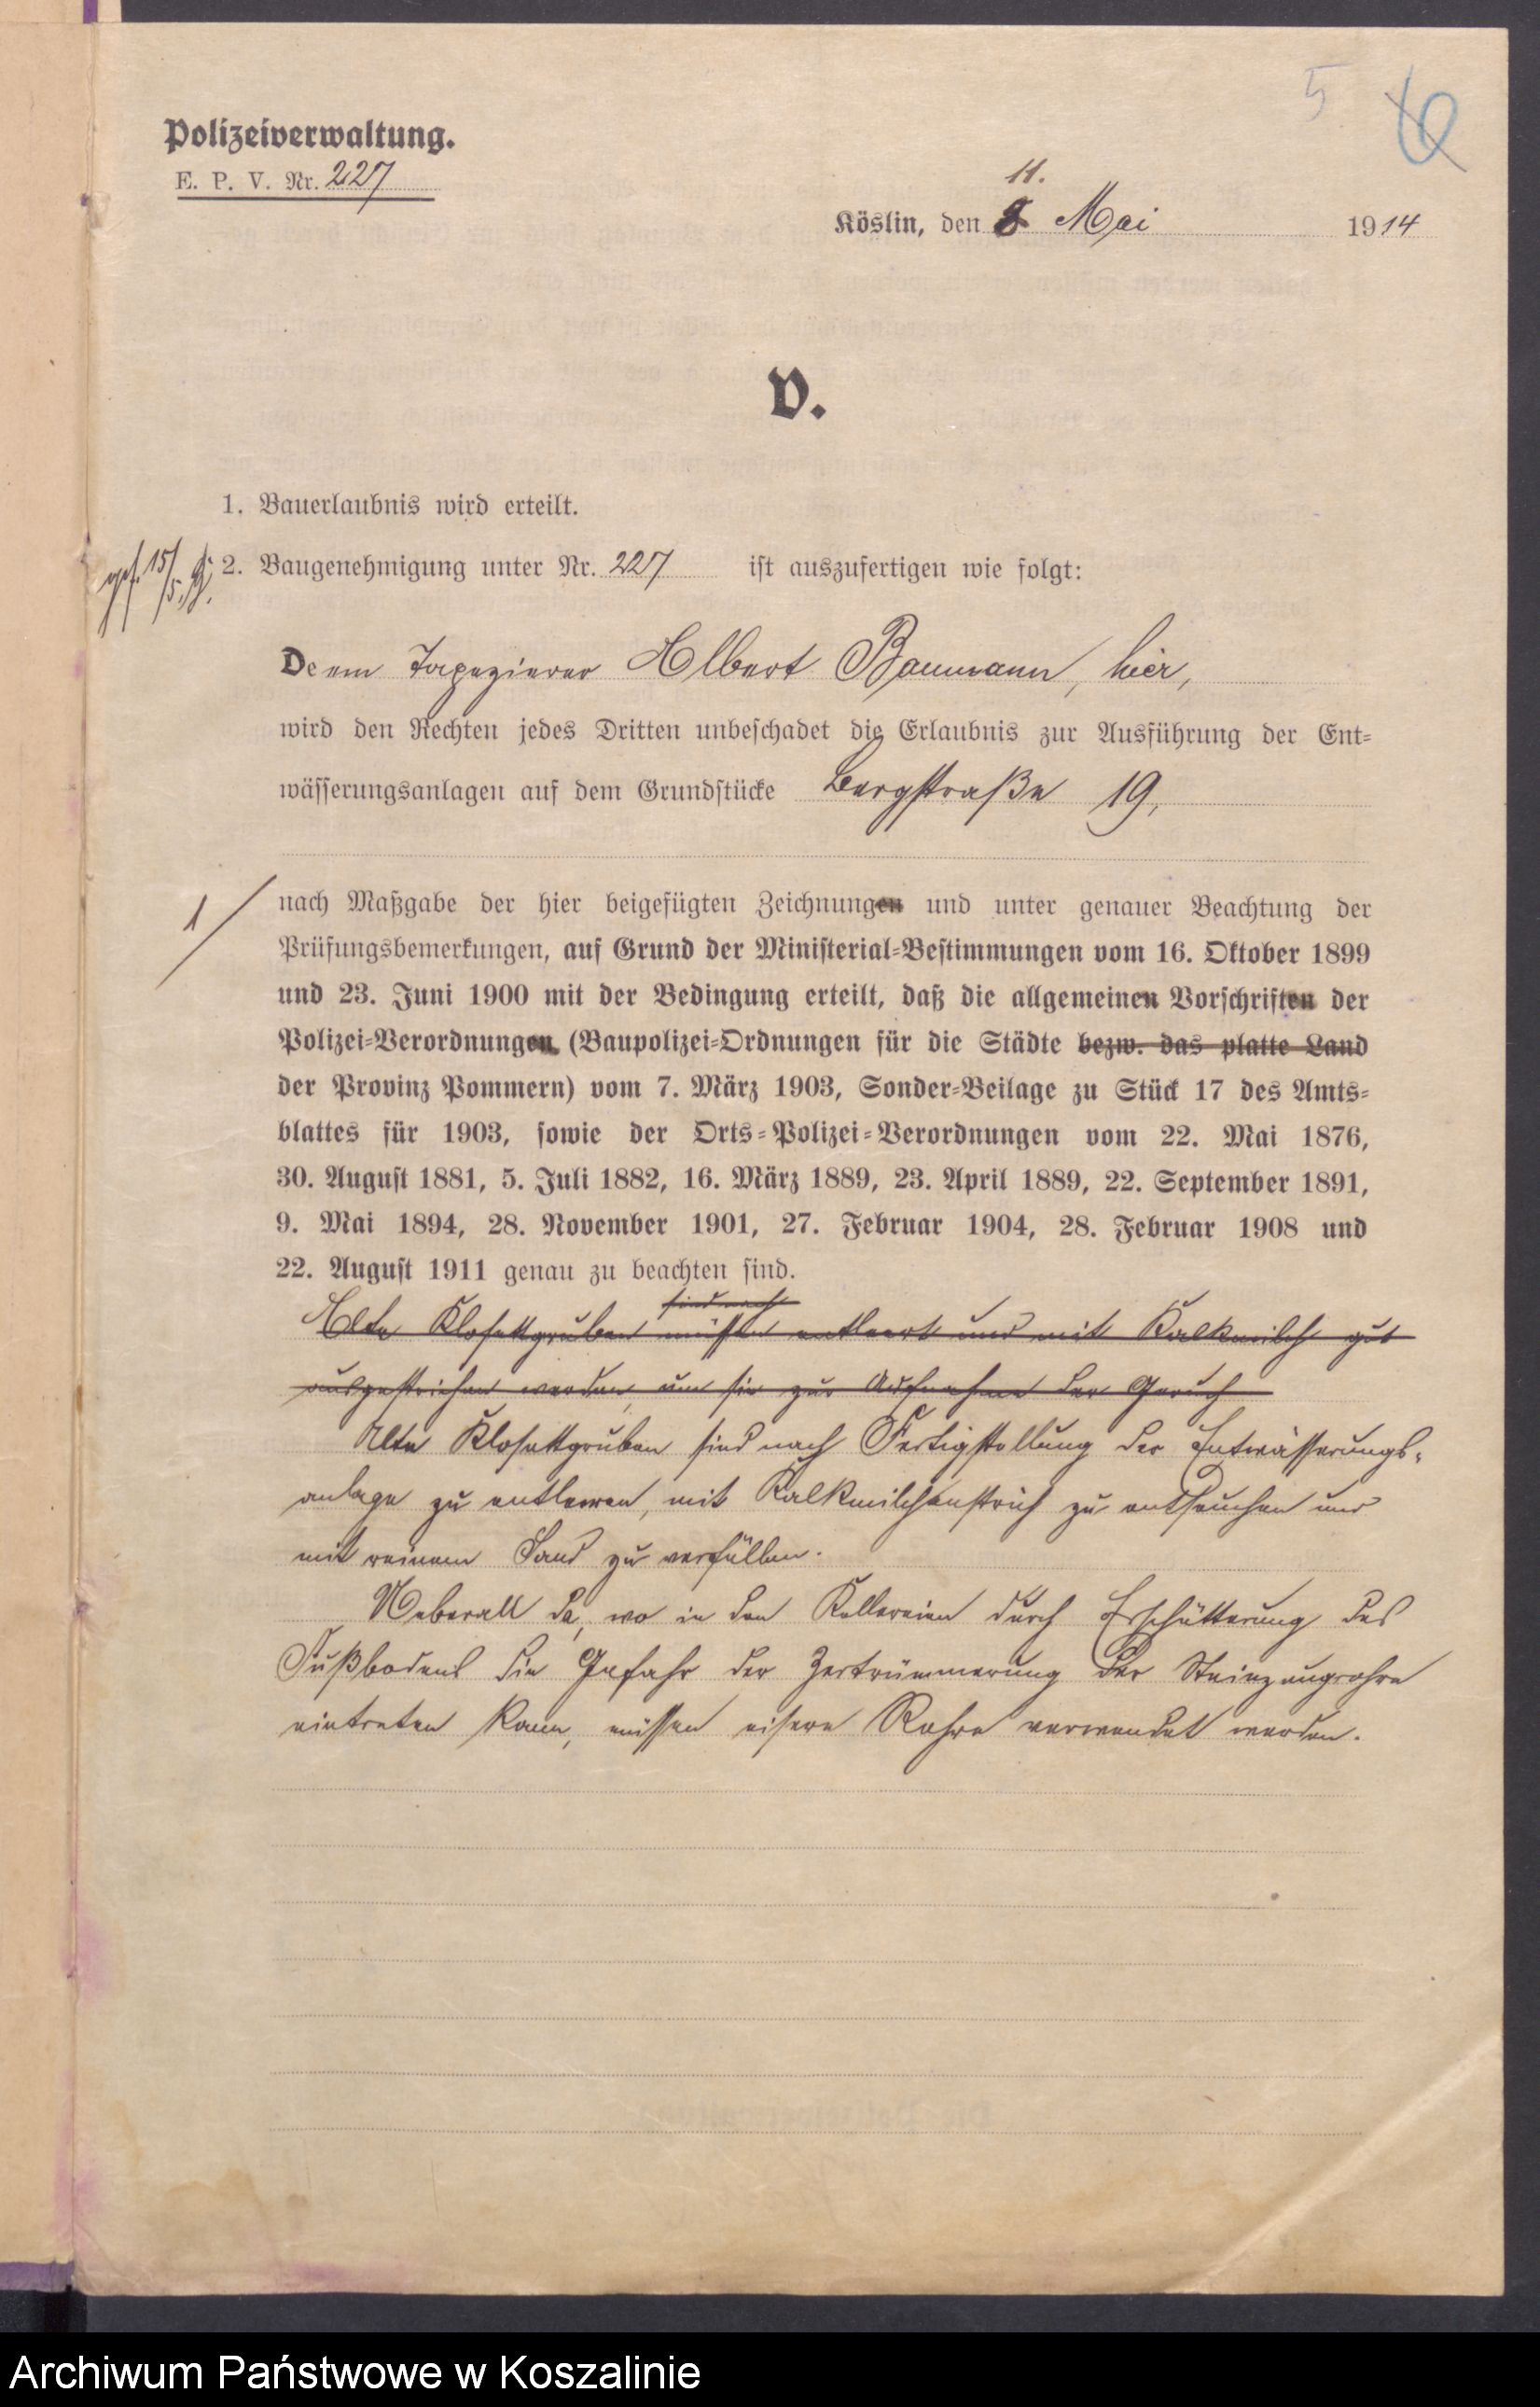 5
Polizeiverwaltung.
E. P. V. Nr. 227
11.
Köslin, den 8 Mai 1914
V.
1. Bauerlaubnis wird erteilt.
2. Baugenehmigung unter Nr. 227 ist auszufertigen wie folgt:
gef. 15/5.
Dem Tapezierer Albert Baumann, hier,
wird den Rechten jedes Dritten unbeschadet die Erlaubnis zur Ausführung der Ent-
wässerungsanlagen auf dem Grundstücke Bergstraße 19,
1/
nach Maßgabe der hier beigefügten Zeichnungen und unter genauer Beachtung der
Prüfungsbemerkungen, auf Grund der Ministerial-Bestimmungen vom 16. Oktober 1899
und 23. Juni 1900 mit der Bedingung erteilt, daß die allgemeinen Vorschriften der
Polizei-Verordnungen (Baupolizei-Ordnungen für die Städte bezw. das platte Land
der Provinz Pommern) vom 7. März 1903, Sonder-Beilage zu Stück 17 des Amts-
blattes für 1903, sowie der Orts-Polizei-Verordnungen vom 22. Mai 1876,
30. August 1881, 5. Juli 1882, 16. März 1889, 23. April 1889, 22. September 1891,
9. Mai 1894, 28. November 1901, 27. Februar 1904, 28. Februar 1908 und
22. August 1911 genau zu beachten sind.
sind nach
Alte Klosettgruben müssen entleert und mit Kalkmilch gut
ausgestrichen werden, um sie zur Aufnahme der Geruch
Alte Klosettgruben sind nach Fertigstellung der Entwässerungs-
anlage zu entleeren, mit Kalkmilchanstrich zu entseuchen und
mit reinem Sand zu verfüllen.
Ueberall da, wo in den Kellereien durch Erschütterung des
Fußbodens die Gefahr der Zertrümmerung der Steinzeugrohre
eintreten kann, müssen eiserne Rohre verwendet werden.
Archiwum Państwowe w Koszalinie